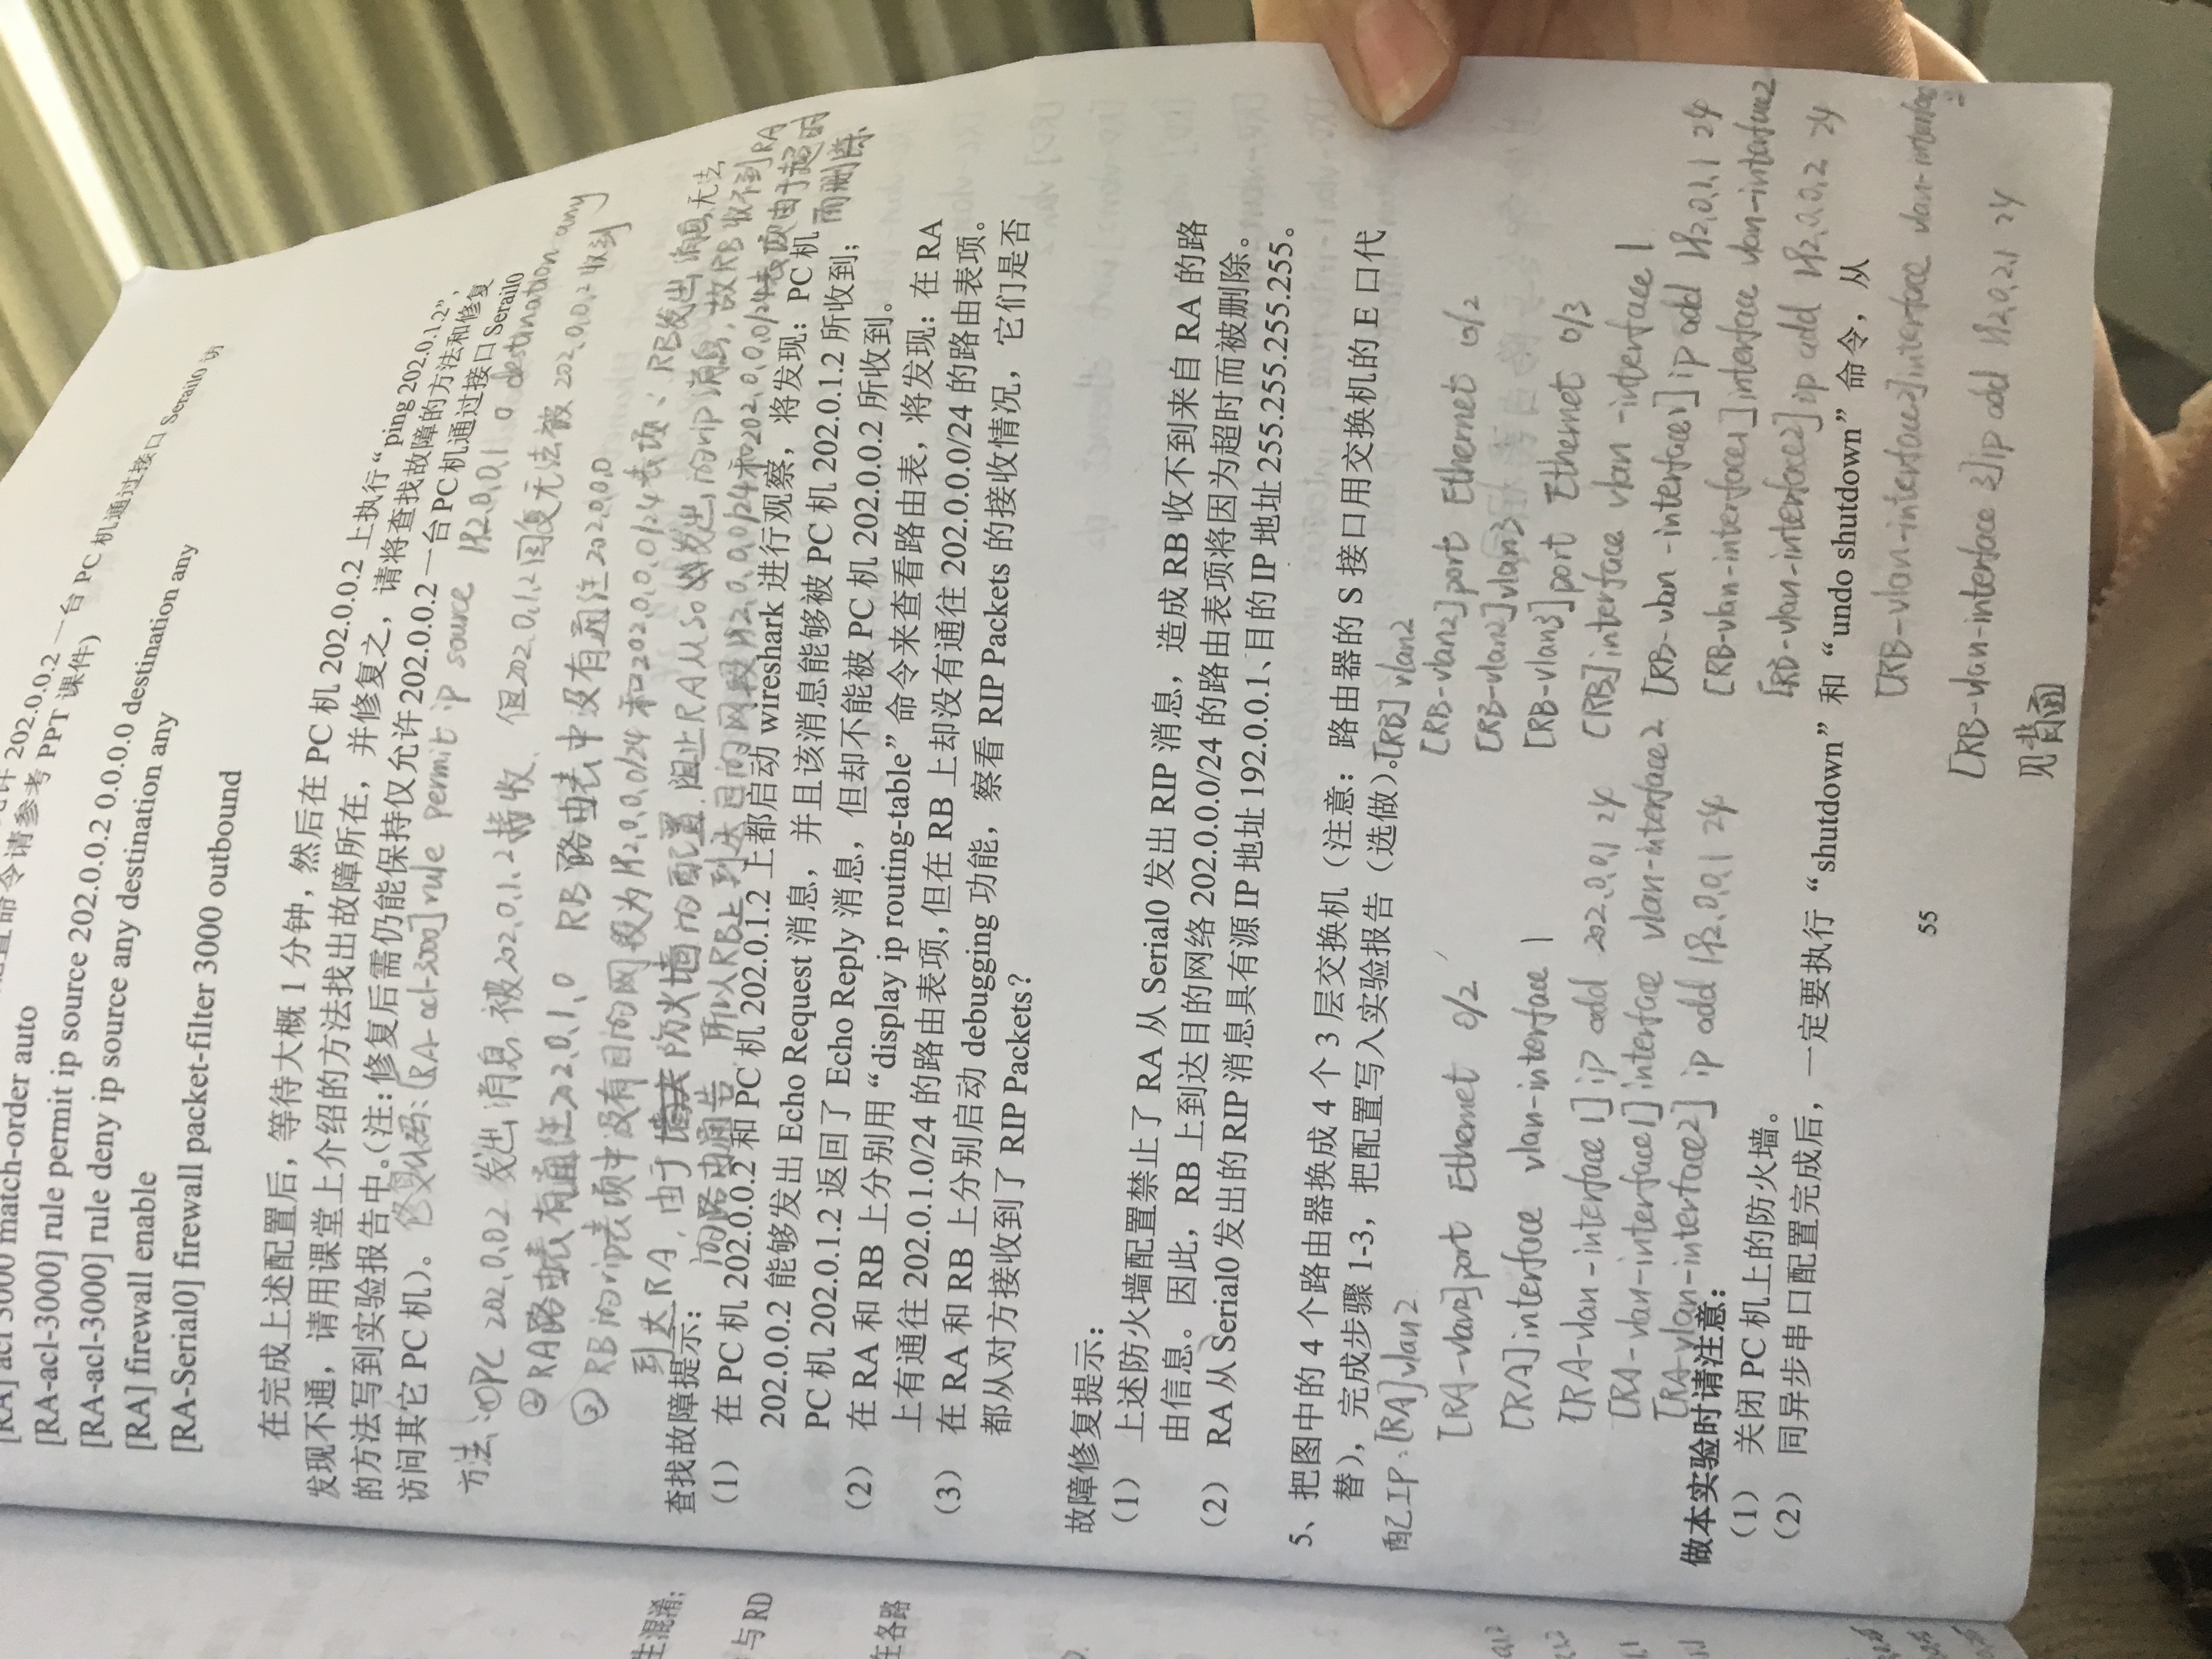 202.0.0.2 一台 PC 机通过接口 Serail0 访
置命令请参考 PPT 课件)
[RA] acl 3000 match-order auto
[RA-acl-3000] rule permit ip source 202.0.0.2 0.0.0.0 destination any
[RA-acl-3000] rule deny ip source any destination any
[RA] firewall enable
[RA-Serial0] firewall packet-filter 3000 outbound
在完成上述配置后，等待大概 1 分钟，然后在 PC 机 202.0.0.2 上执行“ping 202.0.1.2”，
发现不通，请用课堂上介绍的方法找出故障所在，并修复之，请将查找故障的方法和修复
的方法写到实验报告中。(注：修复后需仍能保持仅允许 202.0.0.2 一台 PC 机通过接口 Serail0
访问其它 PC 机)。
修复代码: [RA-acl-3000] rule permit ip source 192.0.0.1 0 destination any
方法: ①PC 202.0.0.2 发出消息 被202.0.1.2接收. 但202.0.1.2回复无法被 202.0.0.2收到
② RA路由表有通往202.0.1.0 RB 路由表中没有通往202.0.0.0
③ RB的rip表项中没有目的网段为192.0.0.0/24 和202.0.0.0/24表项: RB发出消息无法
到达RA, 由于防火墙的配置 阻止RA从S0发出的rip消息, 故RB收不到RA
的路由通告 所以RB上到达目的网段192.0.0.0/24和202.0.0.0/24表项由于超时
而删除
查找故障提示：
（1） 在 PC 机 202.0.0.2 和 PC 机 202.0.1.2 上都启动 wireshark 进行观察，将发现：PC 机
202.0.0.2 能够发出 Echo Request 消息，并且该消息能够被 PC 机 202.0.1.2 所收到；
PC 机 202.0.1.2 返回了 Echo Reply 消息，但却不能被 PC 机 202.0.0.2 所收到。
（2） 在 RA 和 RB 上分别用“display ip routing-table”命令来查看路由表，将发现：在 RA
上有通往 202.0.1.0/24 的路由表项，但在 RB 上却没有通往 202.0.0.0/24 的路由表项。
（3） 在 RA 和 RB 上分别启动 debugging 功能，察看 RIP Packets 的接收情况，它们是否
都从对方接收到了 RIP Packets？
故障修复提示：
（1） 上述防火墙配置禁止了 RA 从 Serial0 发出 RIP 消息，造成 RB 收不到来自 RA 的路
由信息。因此，RB 上到达目的网络 202.0.0.0/24 的路由表项将因为超时而被删除。
（2） RA 从 Serial0 发出的 RIP 消息具有源 IP 地址 192.0.0.1、目的 IP 地址 255.255.255.255。
5、把图中的 4 个路由器换成 4 个 3 层交换机（注意：路由器的 S 接口用交换机的 E 口代
替），完成步骤 1-3，把配置写入实验报告（选做）。
配IP: [RA]vlan2
[RA-vlan2]port Ethernet 0/2
[RA]interface vlan-interface 1
[RA-vlan-interface 1]ip add 202.0.0.1 24
[RA-vlan-interface1]interface vlan-interface2
[RA-vlan-interface2] ip add 192.0.0.1 24
[RB]vlan2
[RB-vlan2]port Ethernet 0/2
[RB-vlan2]vlan3
[RB-vlan3]port Ethernet 0/3
[RB]interface vlan-interface 1
[RB-vlan-interface1]ip add 192.0.1.1 24
[RB-vlan-interface1]interface vlan-interface2
[RB-vlan-interface2]ip add 192.0.0.2 24
[RB-vlan-interface2]interface vlan-interface 3
[RB-vlan-interface 3]ip add 192.0.2.1 24
见背面
做本实验时请注意：
（1） 关闭 PC 机上的防火墙。
（2） 同异步串口配置完成后，一定要执行“shutdown”和“undo shutdown”命令，从
55
生混淆;
与 RD
在各路